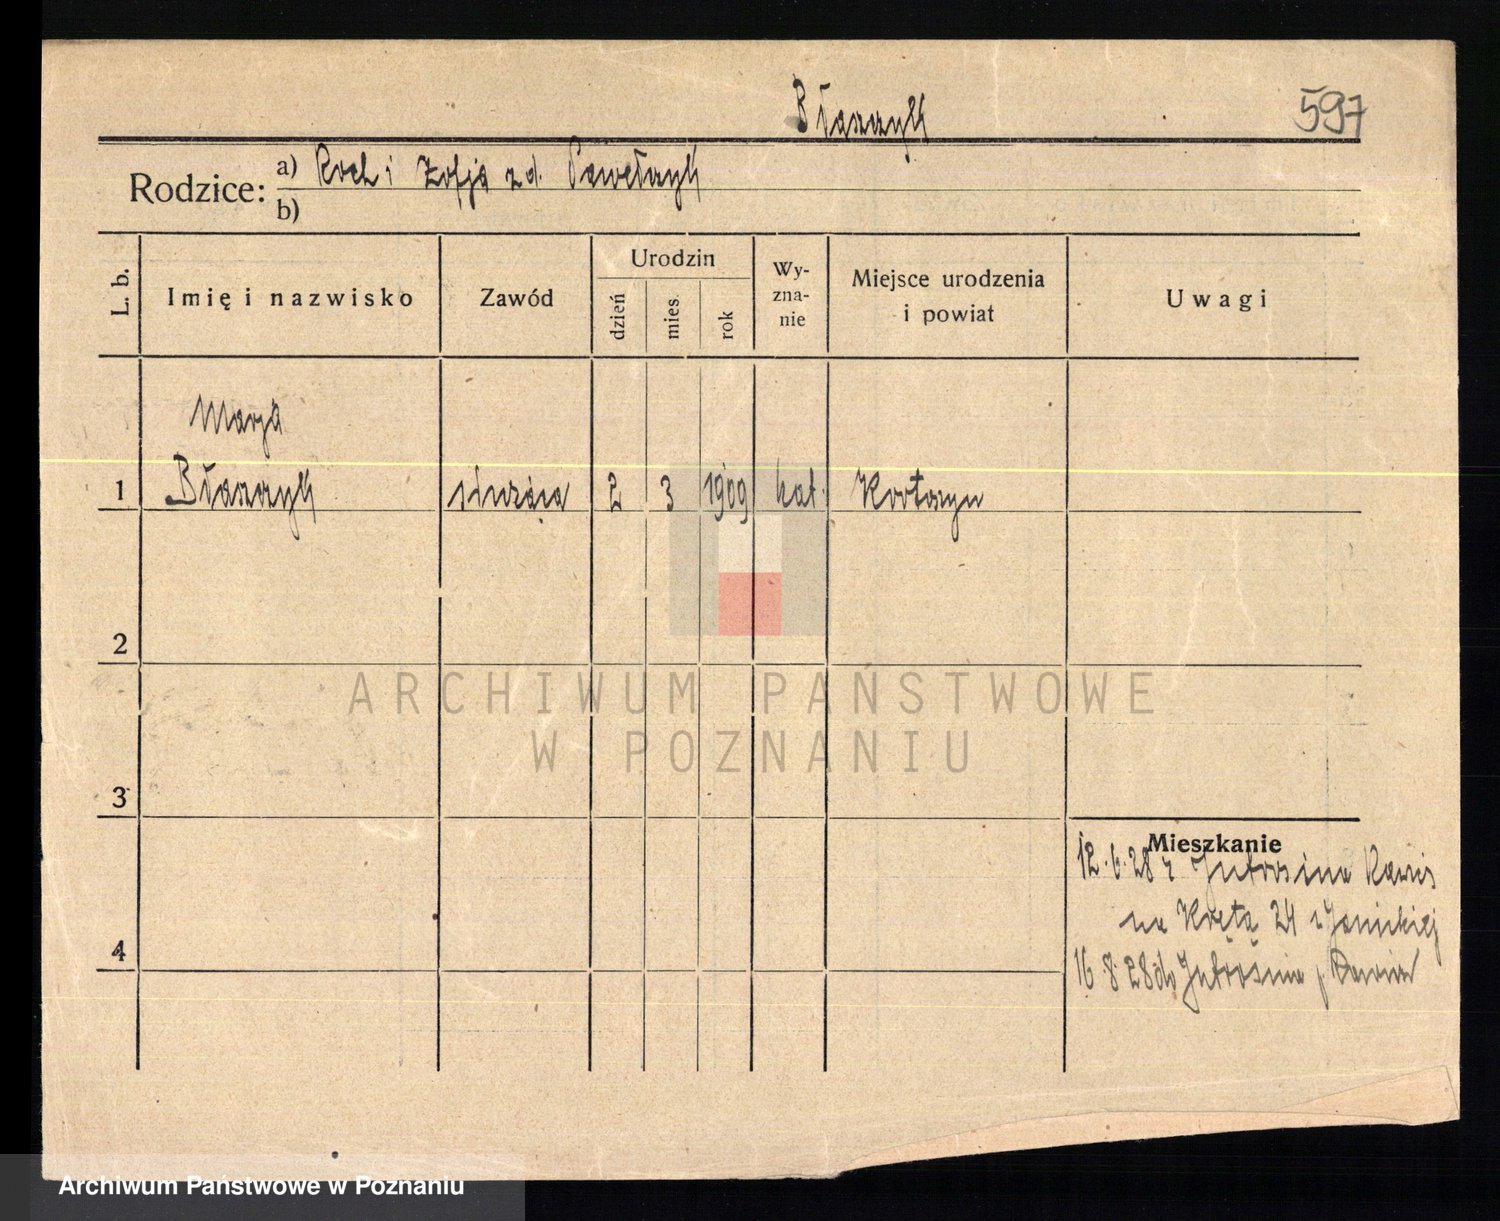 Błaszczyk
597
Rodzice: a) Roch i Zofja z d. Pawełczyk
b)
L. b. Imię i nazwisko Zawód Urodzin dzień mies. rok Wy-zna-nie Miejsce urodzenia i powiat Uwagi
Marja
1 Błaszczyk służąca 2 3 1909 kat.
2
ARCHIWUM PAŃSTWOWE
W POZNANIU
3
Mieszkanie
12.6.28 z Jutrosina Rawic
na Krętą 24 Janickiej
4
16.8.28 do Jutrosina p. Rawicz
Archiwum Państwowe w Poznaniu